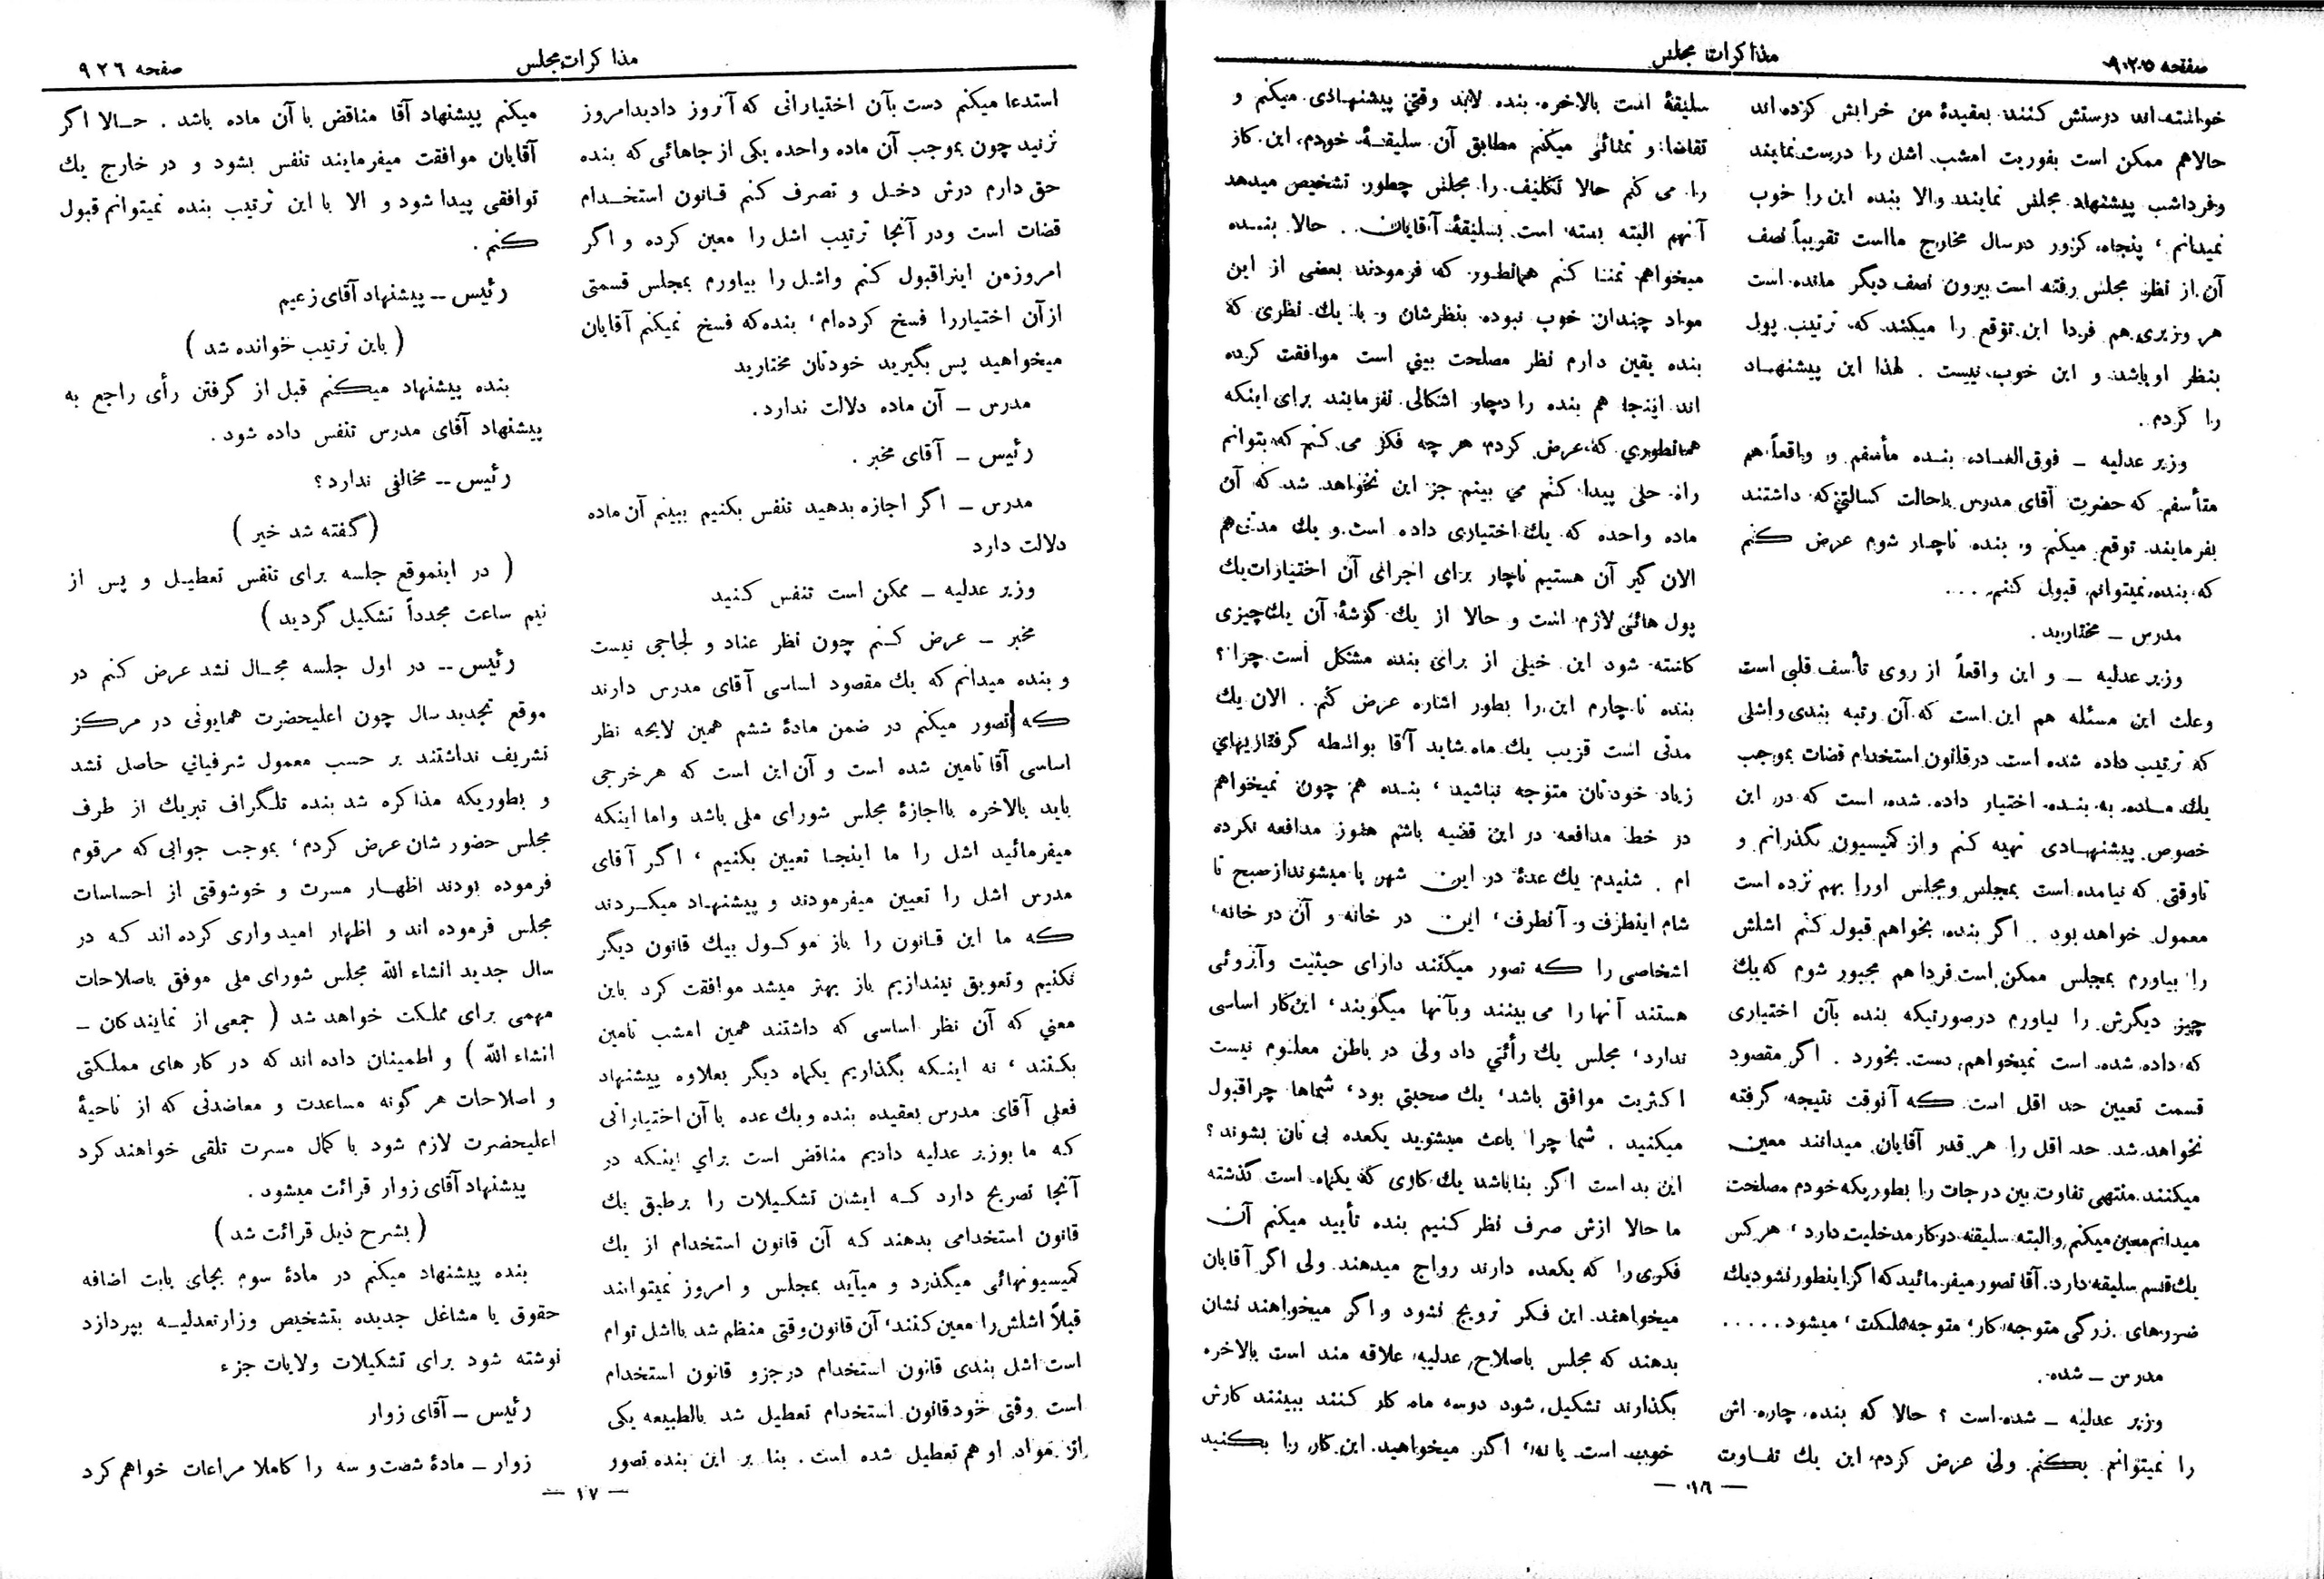 صفحه ۹۲۵
مذاکرات مجلس
خواسته‌اند درستش کنند بعقیدهٔ من خرابش کرده اند
حالاهم ممکن است بفوریت امشب اشل را درست نمایند
وفرداشب پیشنهاد مجلس نمایند والا بنده این را خوب
نمیدانم ، پنجاه کرور درسال مخارج مااست تقریباً نصف
آن از نظر مجلس رفته است بیرون نصف دیگر مانده است
هر وزیری هم فردا این توقع را میکند که ترتیب پول
بنظر او باشد و این خوب نیست . لهذا این پیشنهاد
را کردم .
وزیر عدلیه ـ فوق‌العاده بنده متأسفم و واقعاً هم
متأسفم که حضرت آقای مدرس باحالت کسالتی که داشتند
بفرمایند توقع میکنم و بنده ناچار شوم عرض کنم
که بنده نمیتوانم قبول کنم ....
مدرس ـ مختارید .
وزیر عدلیه ـ و این واقعاً از روی تأسف قلبی است
وعلت این مسئله هم این است که آن رتبه بندی واشلی
که ترتیب داده شده است درقانون استخدام قضات بموجب
یك ماده به بنده اختیار داده شده است که در این
خصوص پیشنهادی تهیه کنم واز کمیسیون بگذرانم و
تاوقتی که نیامده است بمجلس ومجلس اورا بهم نزده است
معمول خواهد بود . اگر بنده بخواهم قبول کنم اشلش
را بیاورم بمجلس ممکن است فردا هم مجبور شوم که یك
چیز دیگرش را بیاورم درصورتیکه بنده بآن اختیاری
که داده شده است نمیخواهم دست بخورد . اگر مقصود
قسمت تعیین حد اقل است که آنوقت نتیجه گرفته
نخواهد شد حد اقل را هر قدر آقایان میدانند معین
میکنند منتهی تفاوت بین درجات را بطوریکه خودم مصلحت
میدانم معین میکنم والبته سلیقه درکار مدخلیت دارد ، هرکس
یك قسم سلیقه دارد . آقا تصور میفرمائید که اگر اینطور نشود یك
ضررهای بزرگی متوجه کار ، متوجه مملکت ، میشود .....
مدرس ـ شده .
وزیر عدلیه ـ شده است ؟ حالا که بنده چاره اش
را نمیتوانم بکنم ولی عرض کردم این یك تفاوت
سلیقهٔ است بالاخره بنده لابد وقتی پیشنهادی میکنم و
تقاضا و تمنائی میکنم مطابق آن سلیقهٔ خودم این کار
را می کنم حالا تکلیف را مجلس چطور تشخیص میدهد
آنهم البته بسته است بسلیقهٔ آقایان . حالا بنده
میخواهم تمنا کنم همانطور که فرمودند بعضی از این
مواد چندان خوب نبوده بنظرشان و با یك نظری که
بنده یقین دارم نظر مصلحت بینی است موافقت کرده
اند اینجا هم بنده را دچار اشکالی نفرمایند برای اینکه
همانطوری که عرض کردم هر چه فکر می کنم که بتوانم
راه حلی پیدا کنم می بینم جز این نخواهد شد که آن
ماده واحده که یك اختیاری داده است و یك مدتی هم
الان گیر آن هستیم ناچار برای اجرای آن اختیارات یك
پول هائی لازم است و حالا از یك گوشهٔ آن یك چیزی
کاسته شود این خیلی از برای بنده مشکل است چرا ؟
بنده ناچارم این را بطور اشاره عرض کنم . الان یك
مدتی است قریب یك ماه شاید آقا بواسطه گرفتاریهای
زیاد خودتان متوجه نباشید ، بنده هم چون نمیخواهم
در خط مدافعه در این قضیه باشم هنوز مدافعه نکرده
ام . شنیدم یك عدهٔ در این شهر پا میشوند از صبح تا
شام اینطرف و آنطرف ، این در خانه و آن در خانه ،
اشخاصی را که تصور میکنند دارای حیثیت وآبروئی
هستند آنها را می بینند وبآنها میگویند ، این کار اساسی
ندارد ، مجلس یك رأئی داد ولی در باطن معلوم نیست
اکثریت موافق باشد ، یك صحبتی بود ، شماها چرا قبول
میکنید . شما چرا باعث میشوید یکعده بی نان بشوند ؟
این بد است اگر بنا باشد یك کاری که یکماه است گذشته
ما حالا ازش صرف نظر کنیم بنده تأیید میکنم آن
فکری را که یکعده دارند رواج میدهند ولی اگر آقایان
میخواهند این فکر ترویج نشود و اگر میخواهند نشان
بدهند که مجلس باصلاح عدلیه علاقه مند است بالاخره
بگذارند تشکیل شود دوسه ماه کار کنند ببینند کارش
خوب است یا نه ، اگر میخواهید این کار را بکنید
ـ ۱٦ ـ
صفحه ۹۲٦
مذاکرات مجلس
استدعا میکنم دست بآن اختیاراتی که آنروز دادید امروز
نزنید چون بموجب آن ماده واحده یکی از جاهائی که بنده
حق دارم درش دخل و تصرف کنم قانون استخدام
قضات است ودر آنجا ترتیب اشل را معین کرده و اگر
امروز من اینرا قبول کنم واشل را بیاورم بمجلس قسمتی
از آن اختیار را فسخ کرده‌ام ، بنده که فسخ نمیکنم آقایان
میخواهید پس بگیرید خودتان مختارید
مدرس ـ آن ماده دلالت ندارد .
رئیس ـ آقای مخبر .
مدرس ـ اگر اجازه بدهید تنفس بکنیم ببینم آن ماده
دلالت دارد
وزیر عدلیه ـ ممکن است تنفس کنید
مخبر ـ عرض کنم چون نظر عناد و لجاجی نیست
و بنده میدانم که یك مقصود اساسی آقای مدرس دارند
که تصور میکنم در ضمن مادهٔ ششم همین لایحه نظر
اساسی آقا تامین شده است و آن این است که هر خرجی
باید بالاخره بااجازهٔ مجلس شورای ملی باشد واما اینکه
میفرمائید اشل را ما اینجا تعیین بکنیم ، اگر آقای
مدرس اشل را تعیین میفرمودند و پیشنهاد میکردند
که ما این قانون را باز موکول بیك قانون دیگر
نکنیم وتعویق نیندازیم باز بهتر میشد موافقت کرد باین
معنی که آن نظر اساسی که داشتند همین امشب تامین
بکنند ، نه اینکه بگذاریم یکماه دیگر بعلاوه پیشنهاد
فعلی آقای مدرس بعقیده بنده ویك عده با آن اختیاراتی
که ما بوزیر عدلیه دادیم مناقض است برای اینکه در
آنجا تصریح دارد که ایشان تشکیلات را برطبق یك
قانون استخدامی بدهند که آن قانون استخدام از یك
کمیسیونهائی میگذرد و میآید بمجلس و امروز نمیتوانند
قبلاً اشلش را معین کنند ، آن قانون وقتی منظم شد بااشل توام
است اشل بندی قانون استخدام درجزو قانون استخدام
است وقتی خود قانون استخدام تعطیل شد بالطبیعه یکی
از مواد او هم تعطیل شده است . بنا بر این بنده تصور
میکنم پیشنهاد آقا مناقض با آن ماده باشد . حالا اگر
آقایان موافقت میفرمایند تنفس بشود و در خارج یك
توافقی پیدا شود و الا با این ترتیب بنده نمیتوانم قبول
کنم .
رئیس ـ پیشنهاد آقای زعیم
( باین ترتیب خوانده شد )
بنده پیشنهاد میکنم قبل از گرفتن رأی راجع به
پیشنهاد آقای مدرس تنفس داده شود .
رئیس ـ مخالفی ندارد ؟
( گفته شد خیر )
( در اینموقع جلسه برای تنفس تعطیل و پس از
نیم ساعت مجدداً تشکیل گردید )
رئیس ـ در اول جلسه مجال نشد عرض کنم در
موقع تجدید سال چون اعلیحضرت همایونی در مرکز
تشریف نداشتند بر حسب معمول شرفیابی حاصل نشد
و بطوریکه مذاکره شد بنده تلگراف تبریك از طرف
مجلس حضورشان عرض کردم ، بموجب جوابی که مرقوم
فرموده بودند اظهار مسرت و خوشوقتی از احساسات
مجلس فرموده اند و اظهار امیدواری کرده اند که در
سال جدید انشاء الله مجلس شورای ملی موفق باصلاحات
مهمی برای مملکت خواهد شد ( جمعی از نمایندگان ـ
انشاء الله ) و اطمینان داده اند که در کار های مملکتی
و اصلاحات هر گونه مساعدت و معاضدتی که از ناحیهٔ
اعلیحضرت لازم شود با کمال مسرت تلقی خواهند کرد
پیشنهاد آقای زوار قرائت میشود .
( بشرح ذیل قرائت شد )
بنده پیشنهاد میکنم در مادهٔ سوم بجای بابت اضافه
حقوق یا مشاغل جدیده بتشخیص وزارتعدلیه بپردازد
نوشته شود برای تشکیلات ولایات جزء
رئیس ـ آقای زوار
زوار ـ مادهٔ شصت و سه را کاملا مراعات خواهم کرد
ـ ۱۷ ـ